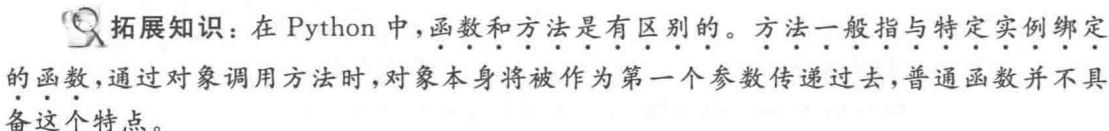 拓展知识：在 Python 中，函数和方法是有区别的。方法一般指与特定实例绑定
的函数，通过对象调用方法时，对象本身将被作为第一个参数传递过去，普通函数并不具
备这个特点。